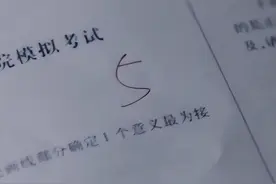 院模拟考试
5
画线部分确定1个意义最为接
的是
及,请